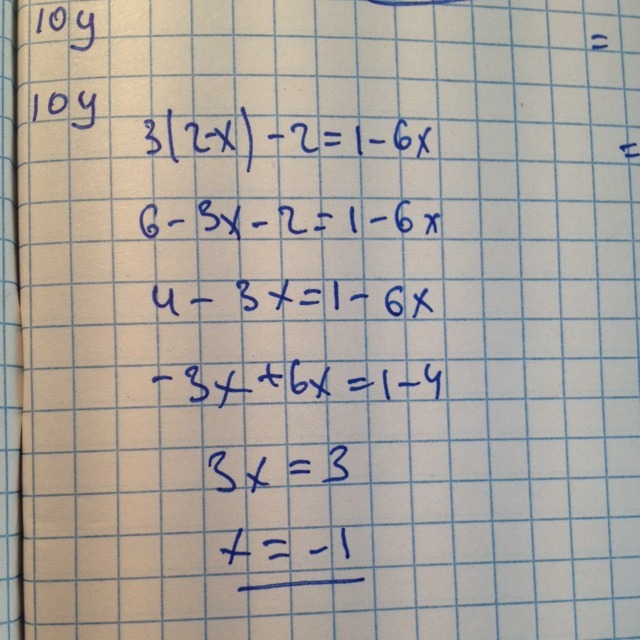 10y
=
10y
3(2-x) - 2 = 1 - 6x
=
6 - 3x - 2 = 1 - 6x
4 - 3x = 1 - 6x
-3x + 6x = 1 - 4
3x = 3
x = -1